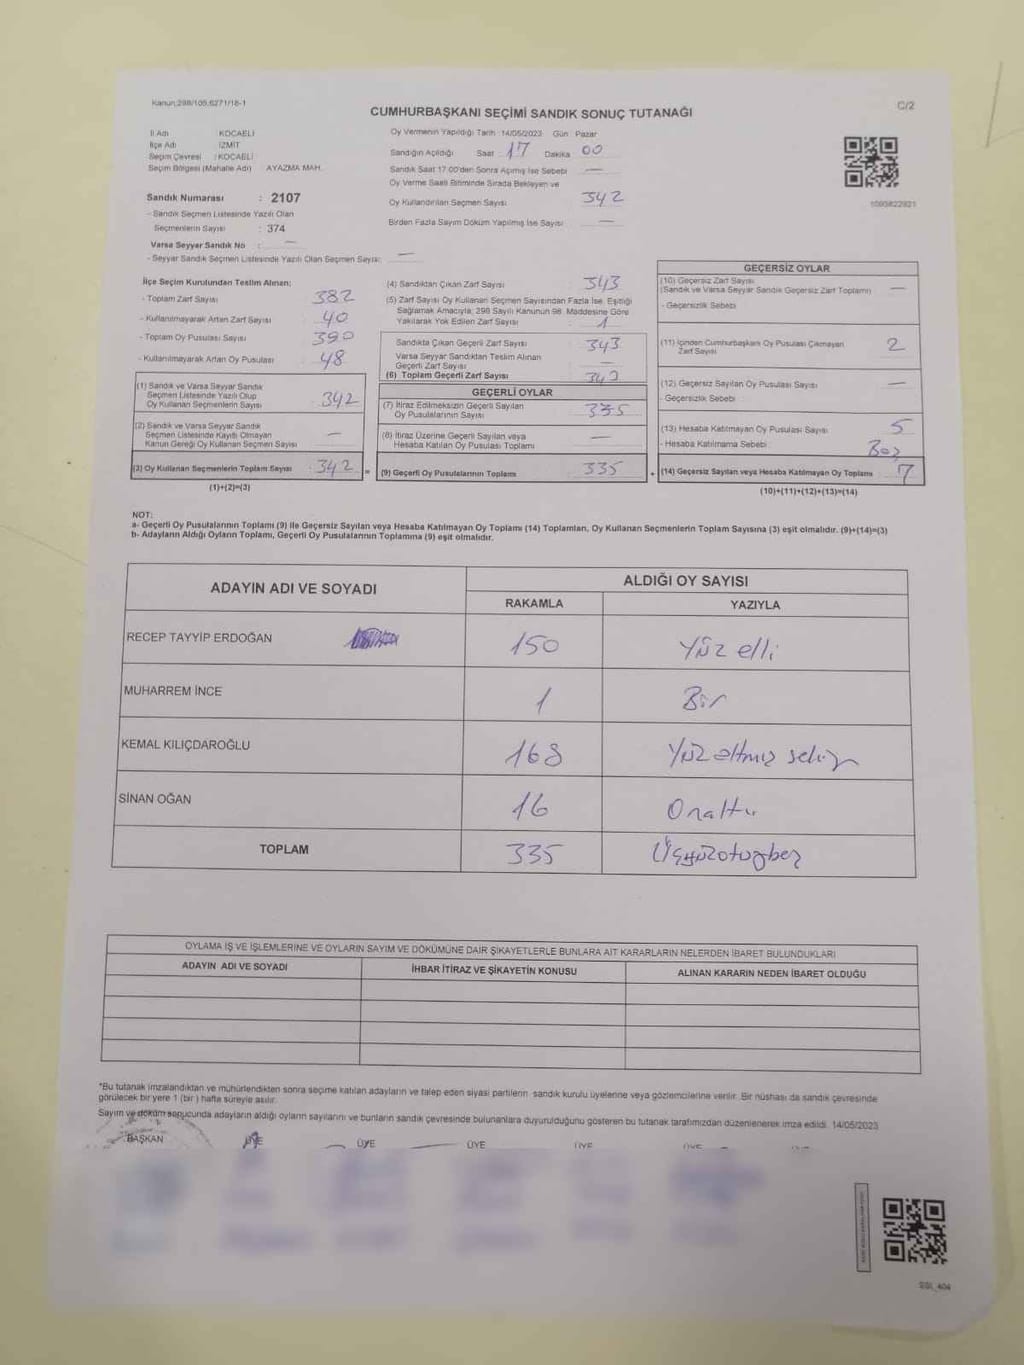 Kanun:298/105,6271/18-1
CUMHURBAŞKANI SEÇİMİ SANDIK SONUÇ TUTANAĞI
C/2
İl Adı KOCAELİ
İlçe Adı İZMİT
Seçim Çevresi : KOCAELİ
Seçim Bölgesi (Mahalle Adı) AYAZMA MAH.
Oy Vermenin Yapıldığı Tarih :14/05/2023 Gün : Pazar
Sandığın Açıldığı Saat : 17 Dakika 00
Sandık Saat 17:00'den Sonra Açımış İse Sebebi —
Oy Verme Saati Bitiminde Sırada Bekleyen ve
Oy Kullandırılan Seçmen Sayısı 342
Birden Fazla Sayım Döküm Yapılmış İse Sayısı —
1095822921
Sandık Numarası : 2107
- Sandık Seçmen Listesinde Yazılı Olan
Seçmenlerin Sayısı : 374
Varsa Seyyar Sandık No : —
- Seyyar Sandık Seçmen Listesinde Yazılı Olan Seçmen Sayısı: —
İlçe Seçim Kurulundan Teslim Alınan:
- Toplam Zarf Sayısı 382
- Kullanılmayarak Artan Zarf Sayısı 40
- Toplam Oy Pusulası Sayısı 390
- Kullanılmayarak Artan Oy Pusulası 48
(1) Sandık ve Varsa Seyyar Sandık
Seçmen Listesinde Yazılı Olup
Oy Kullanan Seçmenlerin Sayısı 342
(2) Sandık ve Varsa Seyyar Sandık
Seçmen Listesinde Kayıtlı Olmayan
Kanun Gereği Oy Kullanan Seçmen Sayısı —
(3) Oy Kullanan Seçmenlerin Toplam Sayısı 342 =
(1)+(2)=(3)
(4) Sandıktan Çıkan Zarf Sayısı 343
(5) Zarf Sayısı Oy Kullanan Seçmen Sayısından Fazla İse, Eşitliği
Sağlamak Amacıyla; 298 Sayılı Kanunun 98. Maddesine Göre
Yakılarak Yok Edilen Zarf Sayısı 1
Sandıkta Çıkan Geçerli Zarf Sayısı 343
Varsa Seyyar Sandıktan Teslim Alınan
Geçerli Zarf Sayısı —
(6) Toplam Geçerli Zarf Sayısı
GEÇERLİ OYLAR
(7) İtiraz Edilmeksizin Geçerli Sayılan
Oy Pusulalarının Sayısı 335
(8) İtiraz Üzerine Geçerli Sayılan veya
Hesaba Katılan Oy Pusulası Toplamı —
(9) Geçerli Oy Pusulalarının Toplamı 335 +
GEÇERSİZ OYLAR
(10) Geçersiz Zarf Sayısı
(Sandık ve Varsa Seyyar Sandık Geçersiz Zarf Toplamı) —
- Geçersizlik Sebebi
(11) İçinden Cumhurbaşkanı Oy Pusulası Çıkmayan
Zarf Sayısı 2
(12) Geçersiz Sayılan Oy Pusulası Sayısı —
- Geçersizlik Sebebi
(13) Hesaba Katılmayan Oy Pusulası Sayısı 5
- Hesaba Katılmama Sebebi Boş
(14) Geçersiz Sayılan veya Hesaba Katılmayan Oy Toplamı 7
(10)+(11)+(12)+(13)=(14)
NOT:
a- Geçerli Oy Pusulalarının Toplamı (9) ile Geçersiz Sayılan veya Hesaba Katılmayan Oy Toplamı (14) Toplamları, Oy Kullanan Seçmenlerin Toplam Sayısına (3) eşit olmalıdır. (9)+(14)=(3)
b- Adayların Aldığı Oyların Toplamı, Geçerli Oy Pusulalarının Toplamına (9) eşit olmalıdır.
ADAYIN ADI VE SOYADI ALDIĞI OY SAYISI
RAKAMLA YAZIYLA
RECEP TAYYİP ERDOĞAN 150 Yüz elli
MUHARREM İNCE 1 Bir
KEMAL KILIÇDAROĞLU 168 Yüz altmış sekiz
SİNAN OĞAN 16 Onaltı
TOPLAM 335 Üçyüzotuzbeş
OYLAMA İŞ VE İŞLEMLERİNE VE OYLARIN SAYIM VE DÖKÜMÜNE DAİR ŞİKAYETLERLE BUNLARA AİT KARARLARIN NELERDEN İBARET BULUNDUKLARI
ADAYIN ADI VE SOYADI İHBAR İTİRAZ VE ŞİKAYETİN KONUSU ALINAN KARARIN NEDEN İBARET OLDUĞU
*Bu tutanak imzalandıktan ve mühürlendikten sonra seçime katılan adayların ve talep eden siyasi partilerin sandık kurulu üyelerine veya gözlemcilerine verilir. Bir nüshası da sandık çevresinde
görülecek bir yere 1 (bir) hafta süreyle asılır.
Sayım ve döküm sonucunda adayların aldığı oyların sayılarını ve bunların sandık çevresinde bulunanlara duyurulduğunu gösteren bu tutanak tarafımızdan düzenlenerek imza edildi. 14/05/2023
BAŞKAN ÜYE ÜYE ÜYE ÜYE ÜYE
SSI_404